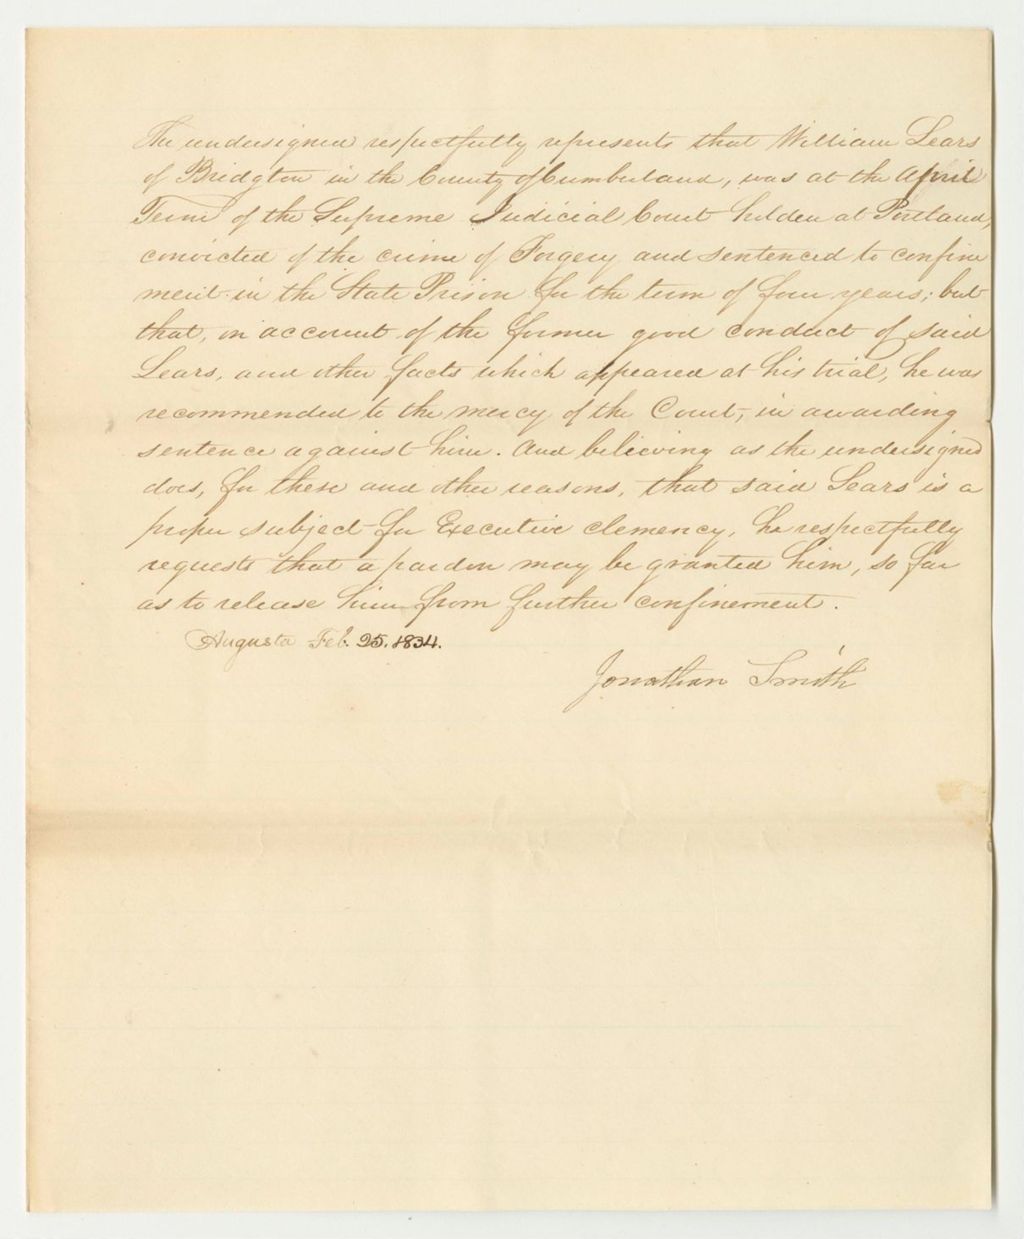 The undersigned respectfully represents that William Sears
of Bridgton in the County of Cumberland, was at the April
Term of the Supreme Judicial Court holden at Portland,
convicted of the crime of Forgery and sentenced to confine
ment in the State Prison for the term of four years; but
that, on account of the former good conduct of said
Sears, and other facts which appeared at his trial, he was
recommended to the mercy of the Court, in awarding
sentence against him. And believing as the undersigned
does, for these and other reasons, that said Sears is a
proper subject for Executive clemency, he respectfully
requests that a pardon may be granted him, so far
as to release him from further confinement.
Augusta Feb. 25. 1834.
Jonathan Smith